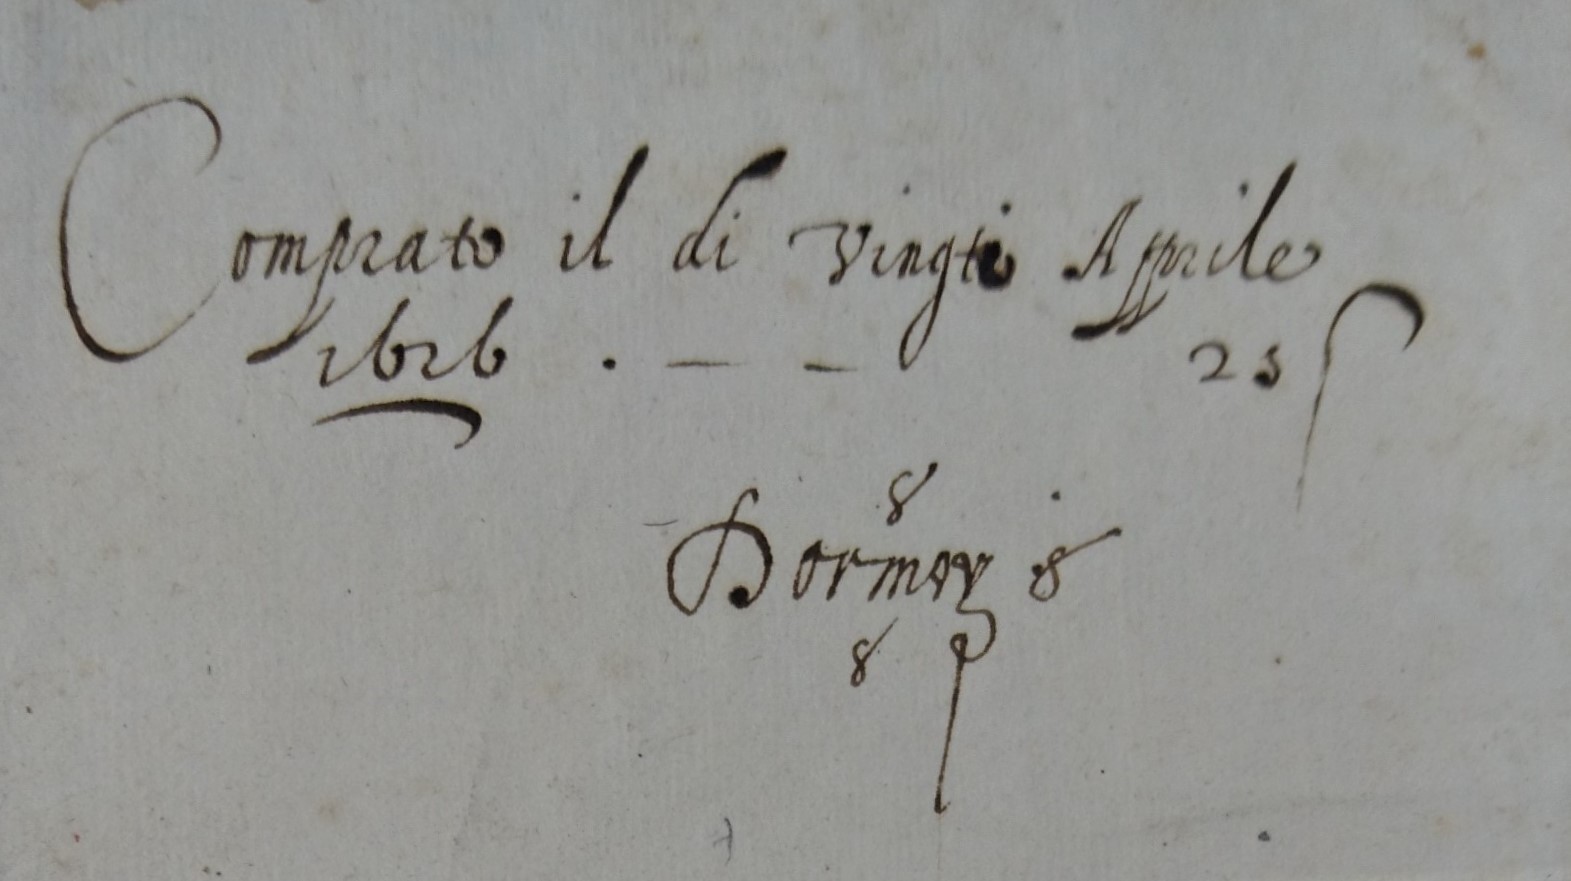 Comprato il di vingti Apprile
1626 . — — 25 ſ
Dormoy